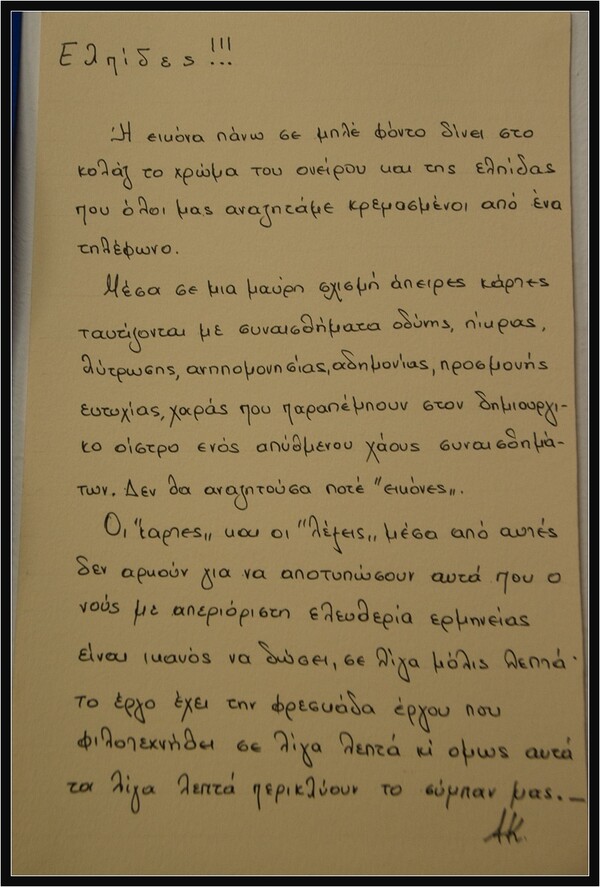 Ελπίδες !!!
Η εικόνα πάνω σε μπλέ φόντο δίνει στο
κολάζ το χρώμα του ονείρου και της ελπίδας
που όλοι μας αναζητάμε κρεμασμένοι από ένα
τηλέφωνο.
Μέσα σε μια μαύρη σχισμή άπειρες κάρτες
ταυτίζονται με συναισθήματα οδύνης, πίκρας,
λύτρωσης, ανηπομονησίας, αδημονίας, προσμονής
ευτυχίας, χαράς που παραπέμπουν στον δημιουργι-
κο οίστρο ενός απύθμενου χάους συναισθημά-
των. Δεν θα αναζητούσα ποτέ "εικόνες„.
Οι "καρτες„ και οι "λέξεις„ μέσα από αυτές
δεν αρκούν για να αποτυπώσουν αυτά που ο
νούς με απεριόριστη ελευθερία ερμηνείας
είναι ικανός να δώσει, σε λίγα μόλις λεπτά·
το έργο έχει την φρεσκάδα έργου που
φιλοτεχνήθει σε λίγα λεπτά κί ομως αυτά
τα λίγα λεπτά περικλύουν το σύμπαν μας._
ΑΚ.